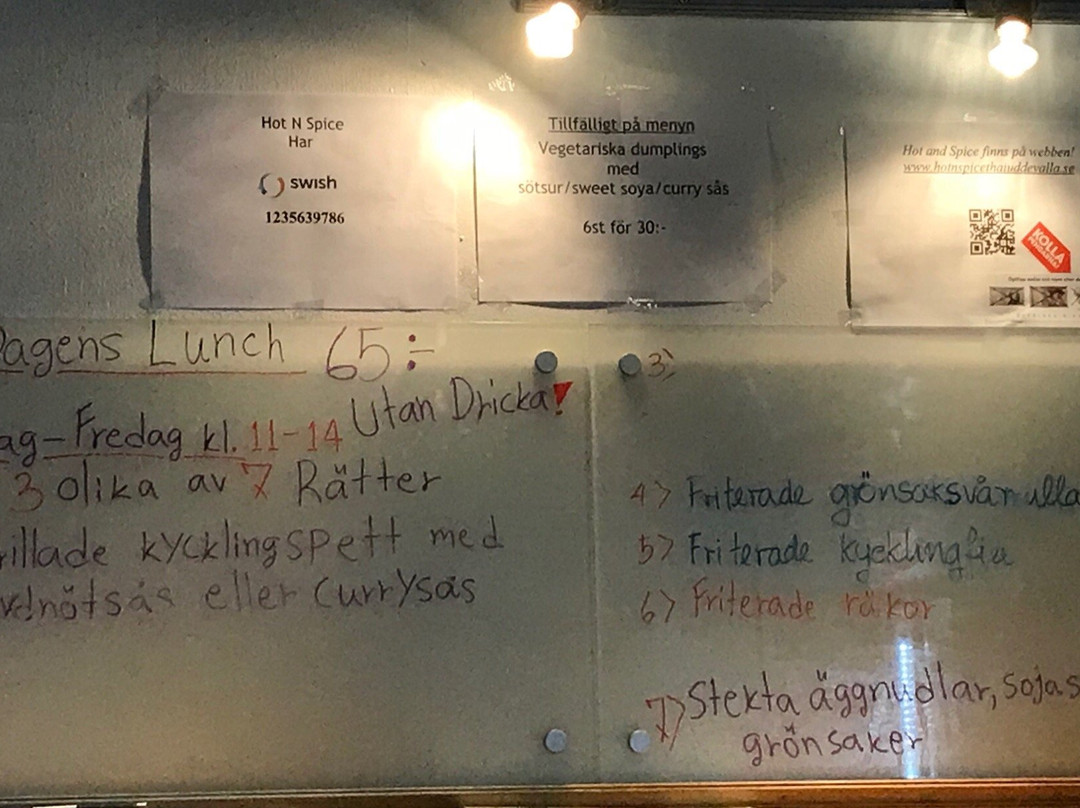 Hot N Spice
Har
swish
1235639786
Tillfälligt på menyn
Vegetariska dumplings
med
sötsur/sweet soya/curry sås
6st för 30:-
Hot and Spice finns på webben!
www.hotnspicethaiuddevalla.se
KOLLA
Dagens Lunch 65:-
Utan Dricka!
ag-Fredag kl. 11-14
3 olika av 7 Rätter
rillade kycklingspett med
dnötsås eller currysås
3)
4) Friterade grönsaksvårrulla
5) Friterade kycklingfile
6) Friterade räkor
7) Stekta äggnudlar, sojas
grönsaker